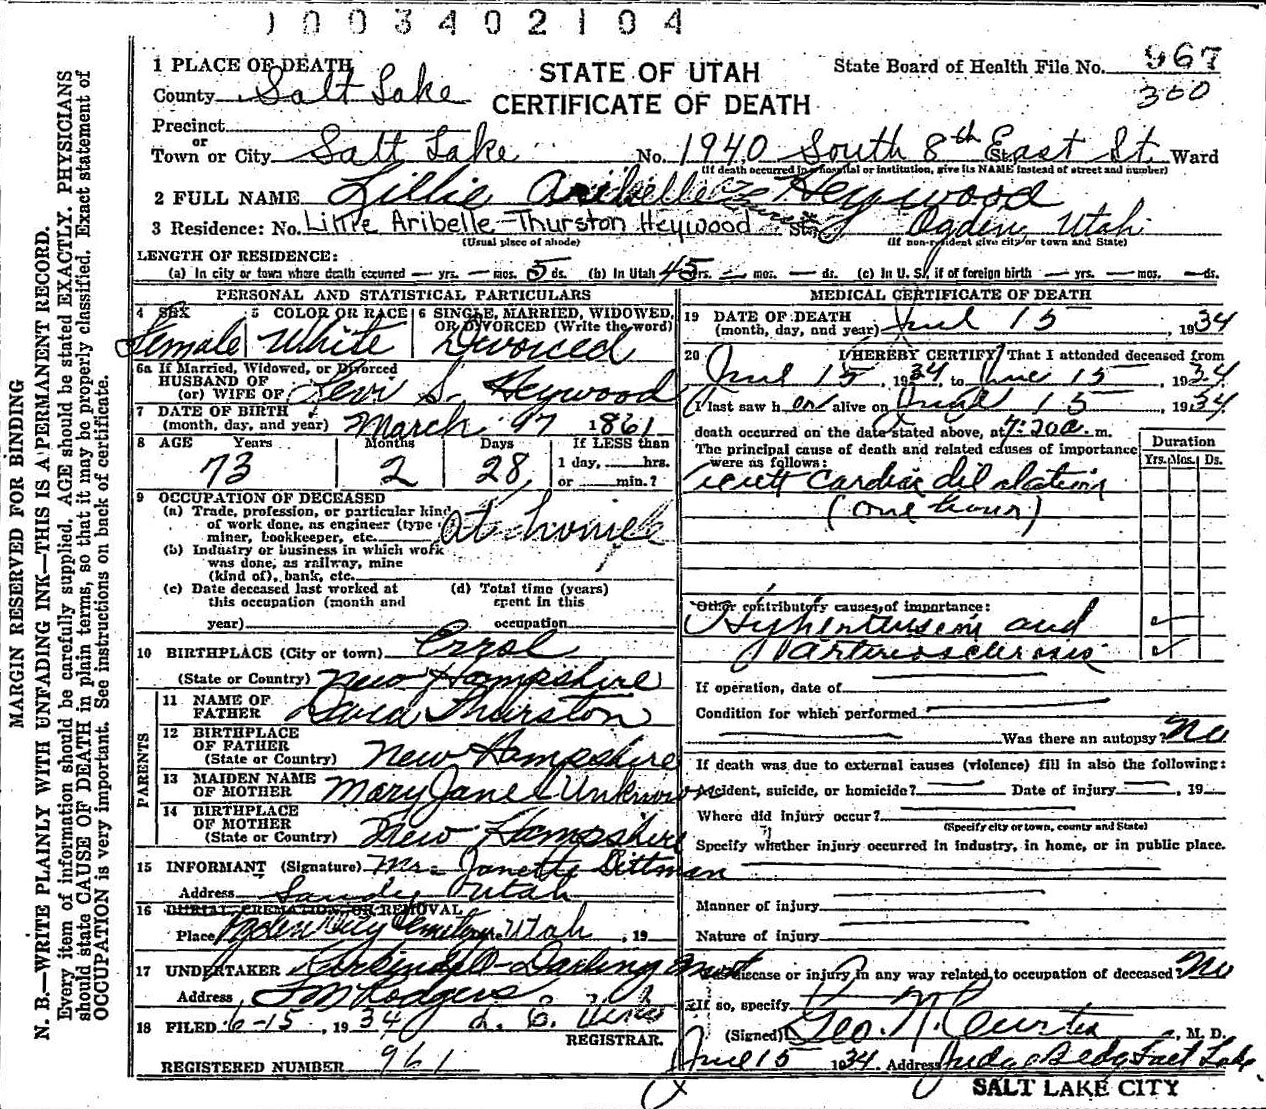 1003402104
1 PLACE OF DEATH
STATE OF UTAH
CERTIFICATE OF DEATH
State Board of Health File No. 967
300
County Salt Lake
Precinct
or
Town or City Salt Lake No. 1940 South 8th East St. Ward
(If death occurred in a hospital or institution, give its NAME instead of street and number)
2 FULL NAME Lillie Aribelle Heywood
3 Residence: No. Little Aribelle Thurston Heywood St. Ogden Utah
(Usual place of abode) (If non-resident give city or town and State)
LENGTH OF RESIDENCE:
(a) In city or town where death occurred — yrs. — mos. 5 ds. (b) In Utah 45 yrs. — mos. — ds. (c) In U. S. if of foreign birth — yrs. — mos. — ds.
PERSONAL AND STATISTICAL PARTICULARS
4 SEX Female
5 COLOR OR RACE White
6 SINGLE, MARRIED, WIDOWED, OR DIVORCED (Write the word) Divorced
6a If Married, Widowed, or Divorced
HUSBAND OF
(or) WIFE OF Levi S. Heywood
7 DATE OF BIRTH
(month, day, and year) March 1861
8 AGE Years 73 Months 2 Days 28
If LESS than
1 day, hrs.
or min.?
9 OCCUPATION OF DECEASED
(a) Trade, profession, or particular kind
of work done, as engineer (type
miner, bookkeeper, etc. At home
(b) Industry or business in which work
was done, as railway, mine
(kind of), bank, etc.
(c) Date deceased last worked at
this occupation (month and
year)
(d) Total time (years)
spent in this
occupation
10 BIRTHPLACE (City or town) Errol
(State or Country) New Hampshire
PARENTS
11 NAME OF
FATHER David Thurston
12 BIRTHPLACE
OF FATHER
(State or Country) New Hampshire
13 MAIDEN NAME
OF MOTHER Mary Jane Unknown
14 BIRTHPLACE
OF MOTHER
(State or Country) New Hampshire
15 INFORMANT (Signature) Mrs. Janette Dittman
Address Sandy Utah
16 BURIAL, CREMATION, OR REMOVAL
Place Ogden City Cemetery Utah, 19
17 UNDERTAKER Larkin Darling
Address
18 FILED 6-15, 1934
REGISTRAR.
REGISTERED NUMBER 961
MEDICAL CERTIFICATE OF DEATH
19 DATE OF DEATH
(month, day, and year) June 15, 1934
20 I HEREBY CERTIFY, That I attended deceased from
June 15, 1934, to June 15, 1934
I last saw her alive on June 15, 1934
death occurred on the date stated above, at 7:20 a. m.
The principal cause of death and related causes of importance
were as follows:
Duration
Yrs. Mos. Ds.
Acute cardiac dilatation
(one hour)
Other contributory causes of importance:
Hypertension and
arteriosclerosis
If operation, date of
Condition for which performed
Was there an autopsy? No
If death was due to external causes (violence) fill in also the following:
Accident, suicide, or homicide? Date of injury, 19
Where did injury occur?
(Specify city or town, county and State)
Specify whether injury occurred in industry, in home, or in public place.
Manner of injury
Nature of injury
Was disease or injury in any way related to occupation of deceased No
If so, specify
(Signed) Geo. N. Curtis, M. D.
June 15 1934. Address Judge Bldg Salt Lake
SALT LAKE CITY
MARGIN RESERVED FOR BINDING
N. B.—WRITE PLAINLY WITH UNFADING INK—THIS IS A PERMANENT RECORD.
Every item of information should be carefully supplied. AGE should be stated EXACTLY. PHYSICIANS
should state CAUSE OF DEATH in plain terms, so that it may be properly classified. Exact statement of
OCCUPATION is very important. See instructions on back of certificate.